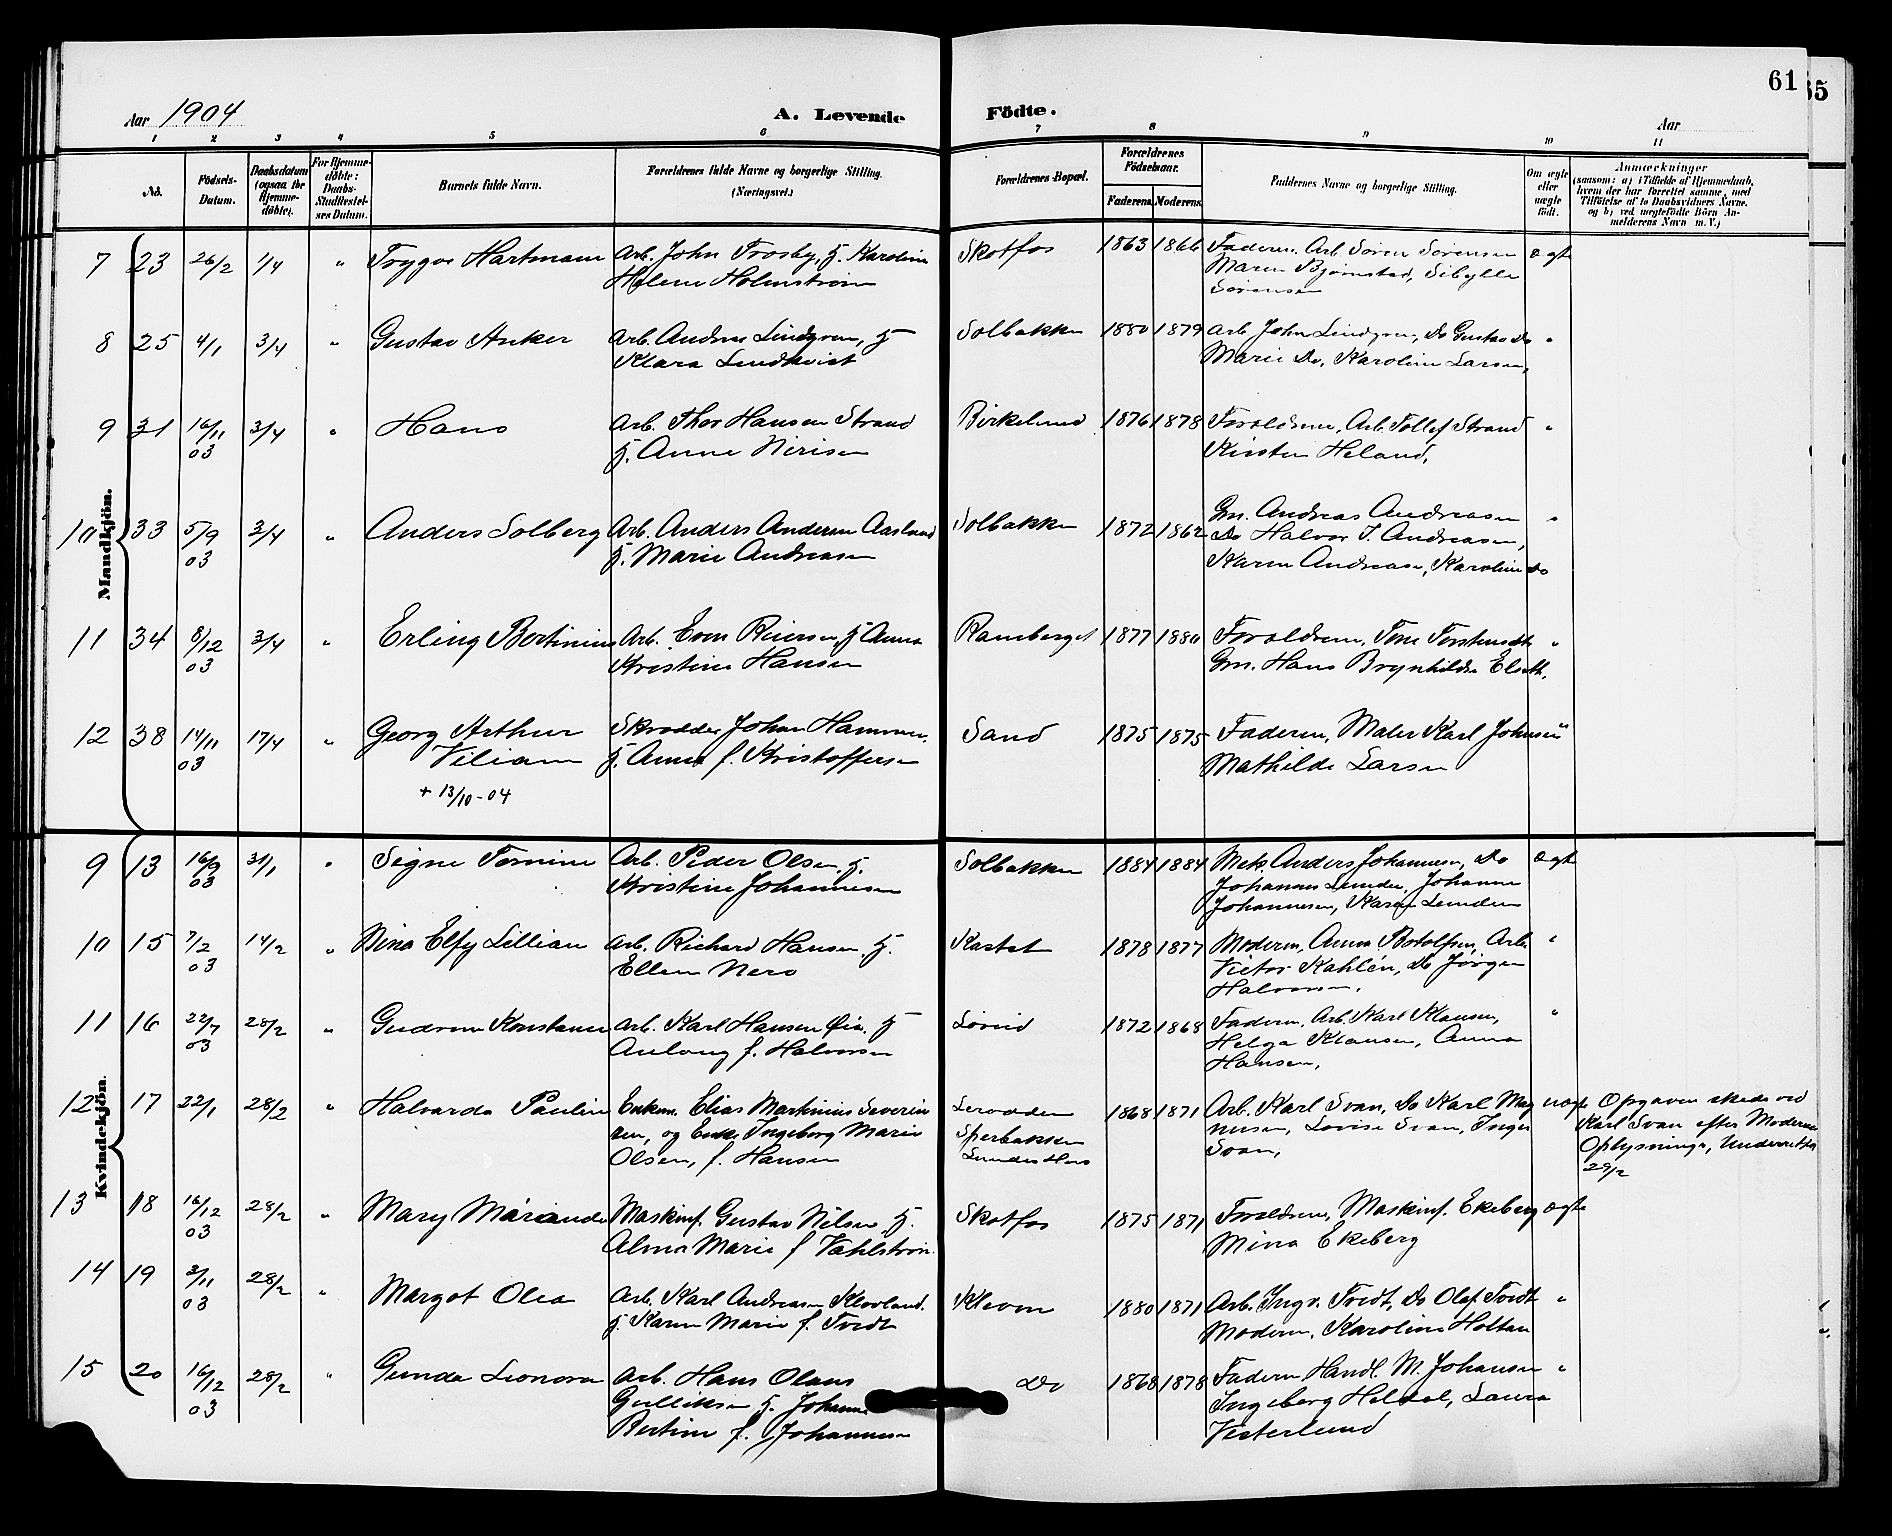 61
65
Aar 1904
A. Levende Födte.
Aar
1 2 3 4 5 6 7 8 9 10 11
No.
Födsels-Datum.
Daabsdatum (ogsaa for Hjemmedöbte).
For Hjemmedöbte: Daabs-Stadfæstelses Datum.
Barnets fulde Navn.
Forældrenes fulde Navne og borgerlige Stilling. (Næringsvei.)
Forældrenes Bopæl.
Forældrenes Födselsaar.
Faderens. Moderens.
Faddernes Navne og borgerlige Stilling.
Om ægte eller uægte födt.
Anmærkninger
(saasom: a) i Tilfælde af Hjemmedaab, hvem der har forrettet samme, med Tilföielse af to Daabsvidners Navne. og b) ved uægtefödte Börn Anmelderens Navn m. V.)
Mandkjön.
7 23 26/2 1/4 " Trygve Hartmann Arb. John Trosby, H. Karoline Skotfos 1863 1866 Faderen, Arb Sören Sörensen ægte
Helene Holmström Maren Bjørnstad, Sibylle
Sörensen
8 25 4/1 3/4 " Gustav Anker Arb. Andreas Lindgren, H Solbakken 1880 1879 Arb. John Lindgren, Do Gustav Do "
Klara Lindkvist Marie Do, Karoline Larsen,
9 31 16/11 3/4 " Hans Arb. Thor Hansen Strand Birkelund 1876 1878 Forældrene, Arb. Tollef Strand "
03 H. Anne Nirisen Kirsten Heland,
10 33 5/9 3/4 " Anders Solberg Arb. Anders Andersen Aasland Solbakken 1872 1862 Gm. Andreas Andreasen "
03 H. Marie Andreasen Do Halvor J. Andreasen,
Karen Andreasen, Karoline Do
11 34 8/12 3/4 " Erling Bertinius Arb. Even Reiersen, H Anna Ramberget 1877 1880 Forældrene, Tone "
03 Kristine Hansen Gm. Hans Brynhildsen
12 38 14/11 17/4 " Georg Arthur Skrædder Johan Hammer, Sand 1875 1875 Faderen, Maler Karl Johnsen "
03 Viliam H. Anna f. Kristoffersen Mathilde Larsen
+ 13/10-04
Kvindekjön.
9 13 16/9 31/1 " Signe Tomine Arb. Peder Olsen, H. Solbakken 1884 1884 Mek. Anders Johannesen, Do ægte
03 Kristine Johannesen Johannes Lunden, Johanne
Johannesen, Karen Lunden
10 15 7/2 14/2 " Nina Elfy Lillian Arb. Richard Hansen, H. Kastet 1878 1877 Moderen, Anna Botolfsen, Arb. "
03 Ellen Nero Victor Kahlén, Do Jørgen
Halvorsen,
11 16 22/7 28/2 " Gudrun Konstance Arb. Karl Hansen Øia, H Löveid 1872 1868 Faderen, Arb. Karl Klausen, "
03 Anlaug f. Halvorsen Helga Klausen, Anna
Hansen,
12 17 22/1 28/2 " Halvarda Pauline Enkem. Elias Martinius Severin 1868 1871 Arb. Karl Svan, Do Karl Mag uægte Opgaven skede ved
sen, og Enke Ingeborg Marie Sperbakken nussen, Lovise Svan, Inger Karl Svan efter Moderens
Olsen, f. Hansen Svan, Oplysninger, Underrettet
29/2
13 18 16/12 28/2 " Mary Marianda Maskinf. Gustav Nilsen H. Skotfos 1875 1871 Forældrene, Maskinf. Ekeberg ægte
03 Alma Marie f Vahlström Mina Ekeberg
14 19 3/11 28/2 " Margot Olea Arb. Karl Andreasen Klovland. Kleven 1880 1871 Arb. Ingv. Tvedt, Do Olaf Tvedt "
03 H. Karen Marie f. Tvedt Moderen, Karoline Holtan
15 20 16/12 28/2 " Gunda Lionora Arb. Hans Olaus Do 1868 1878 Faderen Handl. M. Johansen "
03 Gulliksen H. Johanne Ingeborg Heldal, Laura
Bertine f. Johannesen Vesterlund